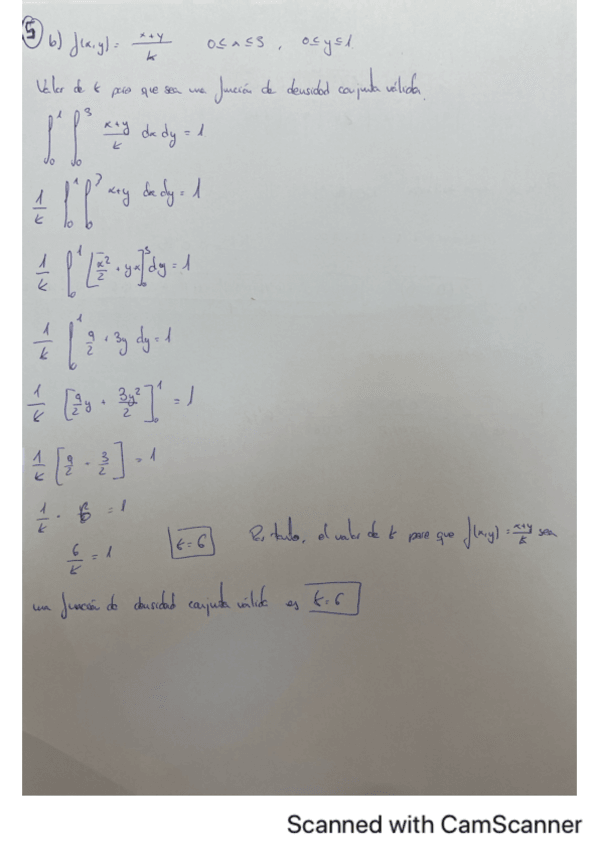 5 b) f(x,y) = x+y/k 0≤x≤3, 0≤y≤1
Valor de k para que sea una función de densidad conjunta válida.
∫₀¹ ∫₀³ x+y/k dx dy = 1
1/k ∫₀¹ ∫₀³ x+y dx dy = 1
1/k ∫₀¹ [x²/2 + yx]₀³ dy = 1
1/k ∫₀¹ 9/2 + 3y dy = 1
1/k [9/2 y + 3y²/2]₀¹ = 1
1/k [9/2 + 3/2] = 1
1/k · 6 = 1
6/k = 1 k=6 Por tanto, el valor de k para que f(x,y) = x+y/k sea
una función de densidad conjunta válida es k=6
Scanned with CamScanner